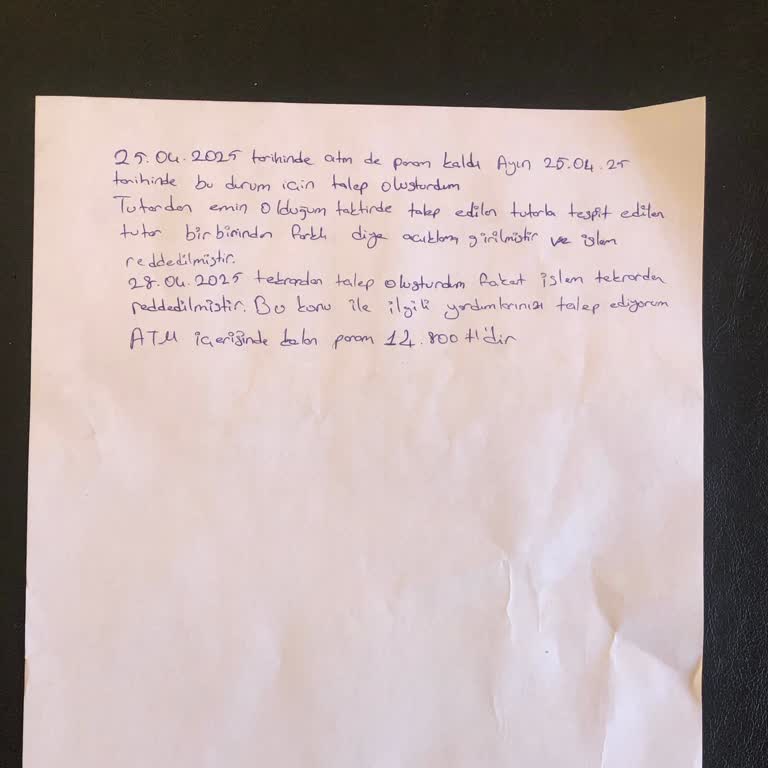 25.04.2025 tarihinde atm de param kaldı Ayın 25.04.25
tarihinde bu durum için talep oluşturdum
Tutardan emin olduğum taktirde talep edilen tutarla tespit edilen
tutar birbirinden farklı diye açıklama girilmiştir ve işlem
reddedilmiştir.
28.04.2025 tekrardan talep oluşturdum fakat işlem tekrardan
reddedilmiştir. Bu konu ile ilgili yardımlarınızı talep ediyorum
ATM içerisinde kalan param 14.800 tl'dir